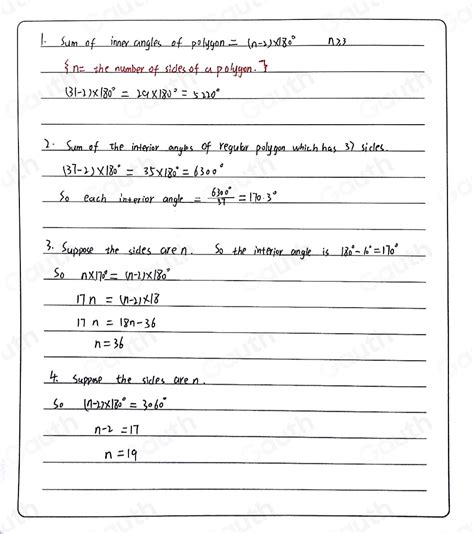 1. Sum of inner angles of polygon = (n-2)×180° n≥3
{n= the number of sides of a polygon.}
(31-2)×180° = 29×180° = 5220°
2. Sum of the interior angles of regular polygon which has 37 sides.
(37-2)×180° = 35×180° = 6300°
So each interior angle = 6300°/37 = 170.3°
3. Suppose the sides are n. So the interior angle is 180°-10°=170°
So n×170° = (n-2)×180°
17n = (n-2)×18
17n = 18n-36
n=36
4. Suppose the sides are n.
So (n-2)×180° = 3060°
n-2 =17
n=19
Gauth